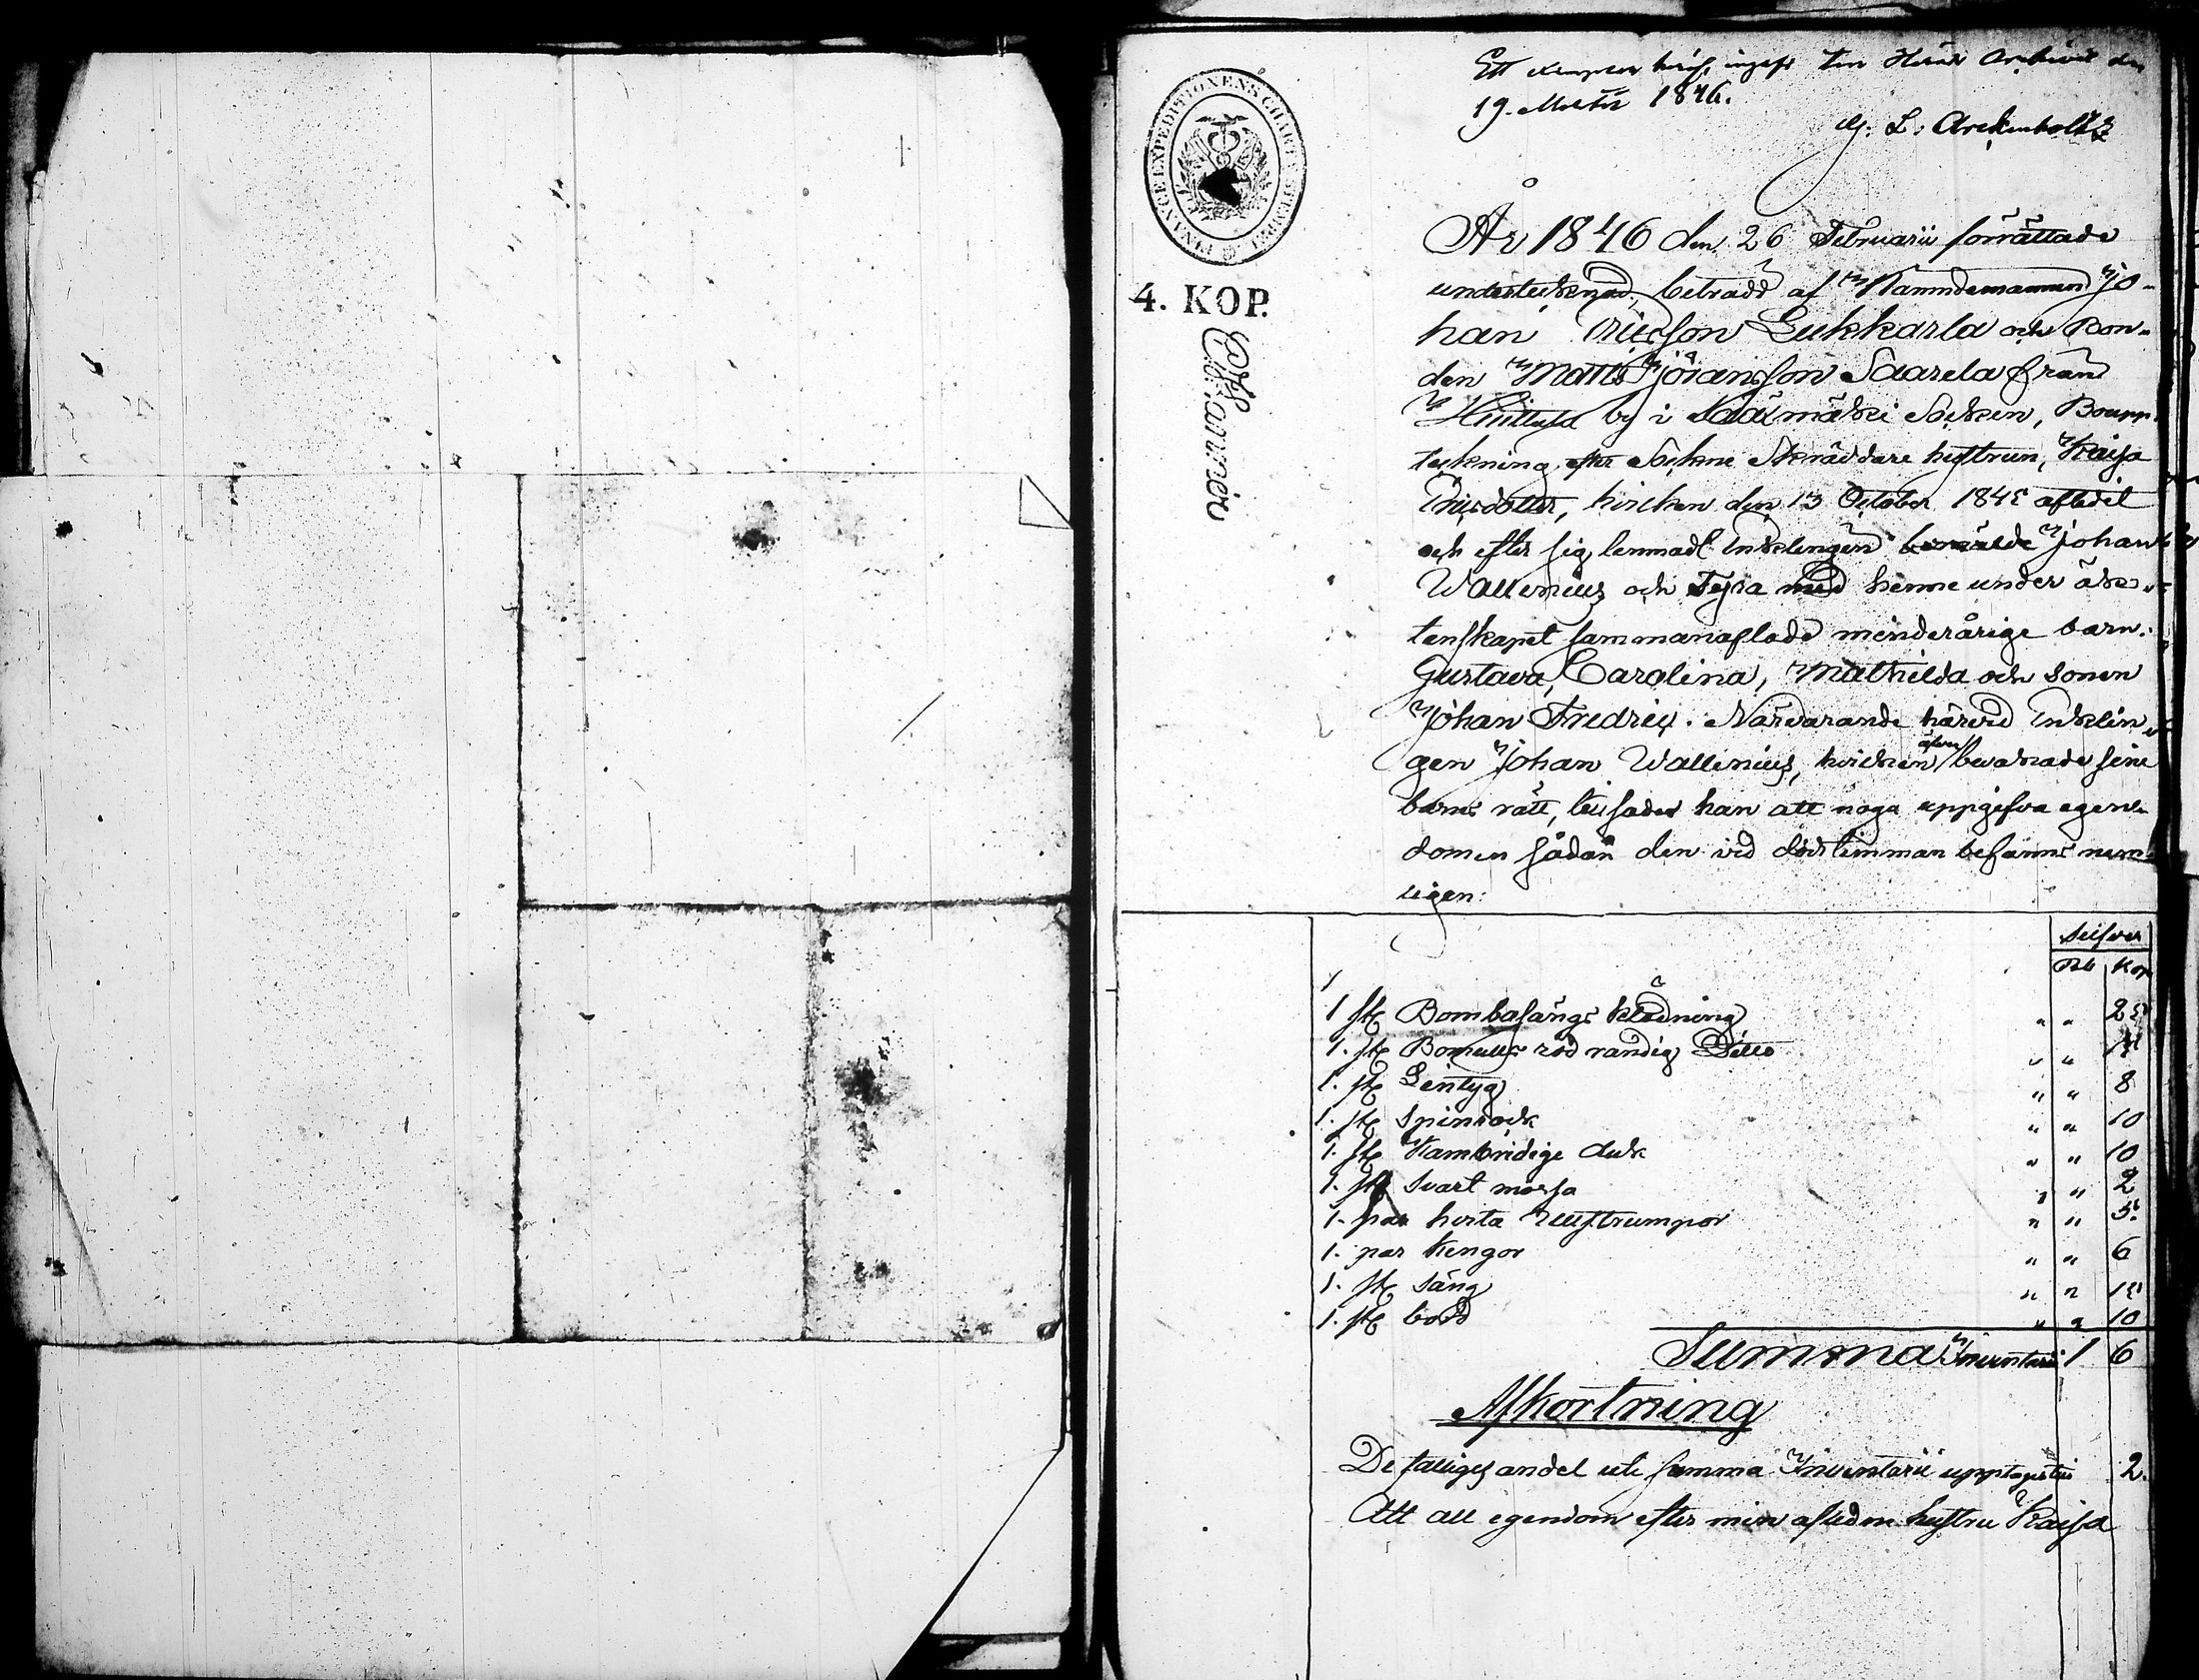 Ett exemplar häraf ingifv. till Härads Archivet den
19. Martii 1846.
G. L. Arckenholtz
FINANCE EXPEDITIONENS CHARTÆ STEMPEL
4. KOP.
År 1846 den 26 Februarii förrättade
undertecknad, biträdd af Nämndemannen Jo-
han Ericsson Lukkarla och Bon-
den Matts Göransson Saarela från
Huittula by i Sääxmäki Socken, Boupp-
teckning efter Sockne Skräddare hustrun, Kaisa
Thisdotter, hvilken den 13 October 1845 aflidit
och efter sig lemnadt Enklingen Johan
Wallenius och Fyra med henne under äkt-
tenskapet sammanaflade minderårige barn.
Gustava, Carolina, Mathilda och sonen
Johan Fredric. Närvarande härvid Enklin-
gen Johan Wallenius, hvilken äfven bevakade sine
barns rätt, tillsades han att noga uppgifva egen-
domen sådan den vid dödstimman befanns nem-
ligen:
Silfver
Rub Kop
1 st Bombasängs klädning " " 25
1. st Bomulls röd randig Ditto " " 15
1. st Lintyg " " 8
1. st Spinrock " " 10
1. st Kambridige duk " " 10
1. st Svart mössa " " 2
1. par hvita ullstrumpor " " 5.
1. par Kengor " " 6
1. st säng " " 15
1. st bord " " 10
Summa Inventarii 1 6
Afkortning
De fattiges andel ute summa Inventarii upptages till 2.
Att all egendom efter min aflidne hustru Kaisa